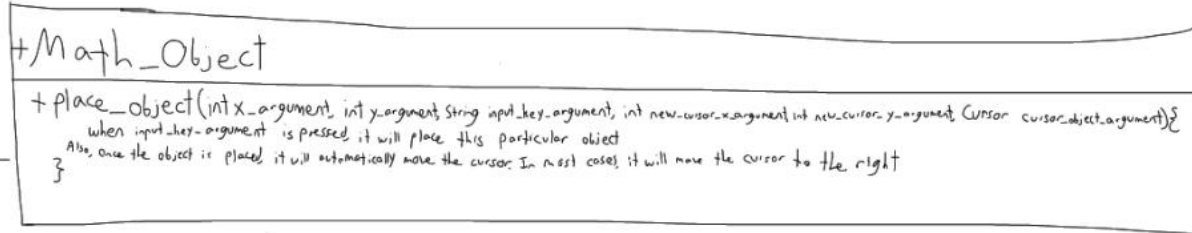 +Math_Object
+place_object(int x_argument, int y_argument, String input_key_argument, int new_cursor_x_argument int new_cursor_y_argument, Cursor cursor_object_argument){
when input_key_argument is pressed, it will place this particular object
Also, once the object is placed, it will automatically move the cursor. In most cases, it will move the cursor to the right
}